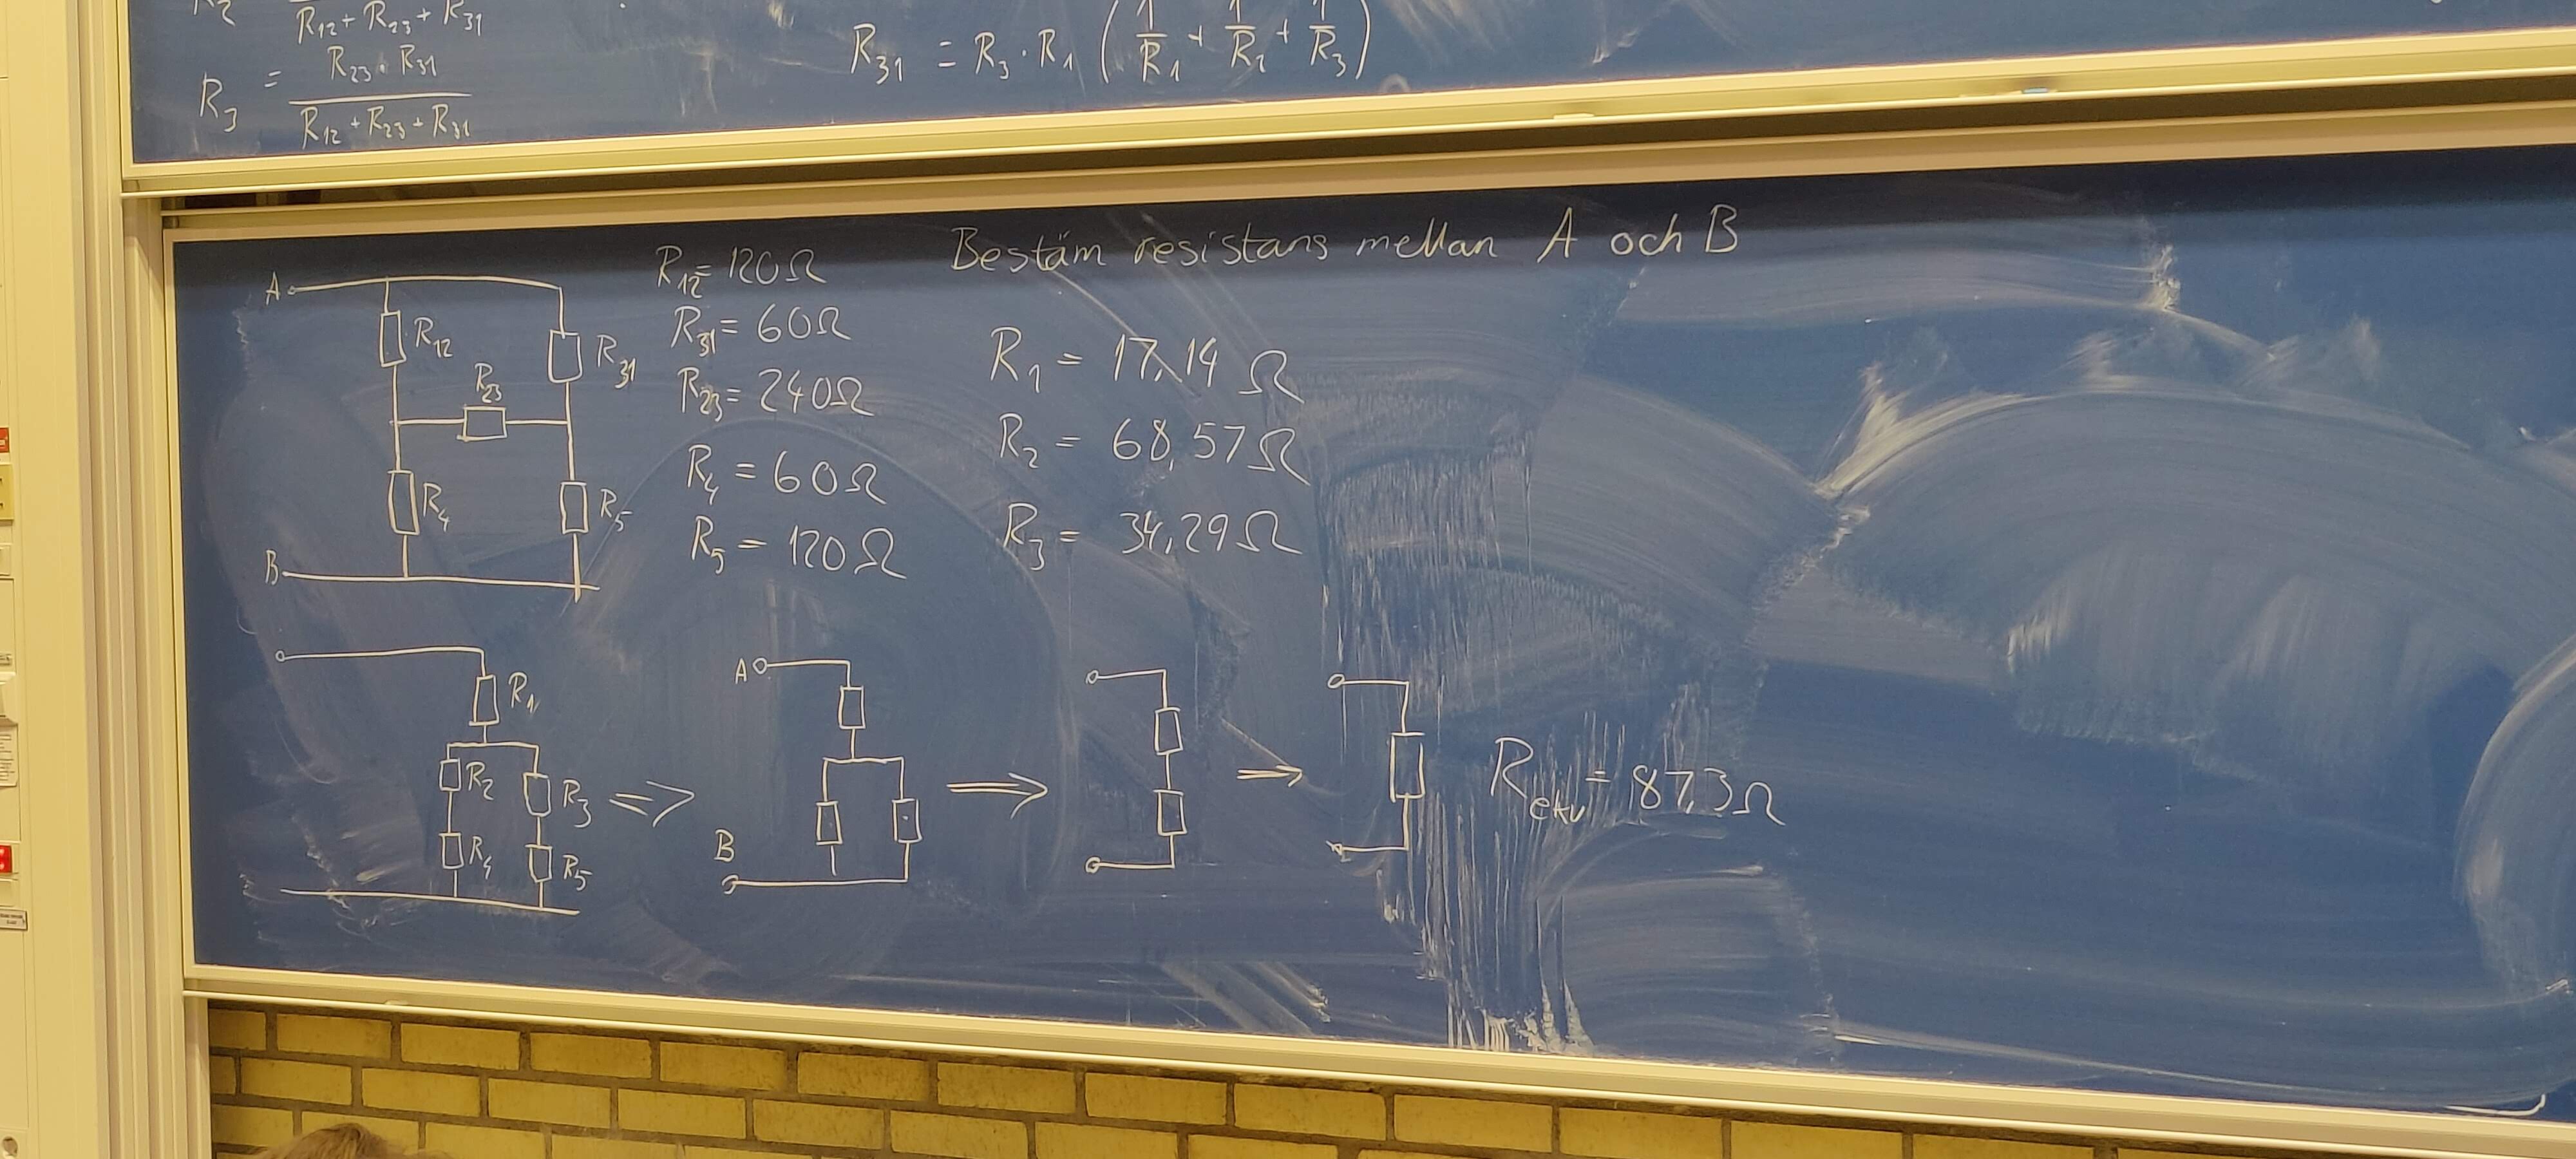 R₂ R₁₂ + R₂₃ + R₃₁
R₃ = R₂₃ · R₃₁ / R₁₂ + R₂₃ + R₃₁
R₃₁ = R₃ · R₁ (1/R₁ + 1/R₂ + 1/R₃)
Bestäm resistans mellan A och B
A
R₁₂
R₃₁
R₂₃
R₄
R₅
B
R₁₂ = 120Ω
R₃₁ = 60Ω
R₂₃ = 240Ω
R₄ = 60Ω
R₅ = 120Ω
R₁ = 17,14 Ω
R₂ = 68,57Ω
R₃ = 34,29Ω
R₁
R₂
R₃
R₄
R₅
=>
A
B
=>
=>
Rekv = 87,3Ω